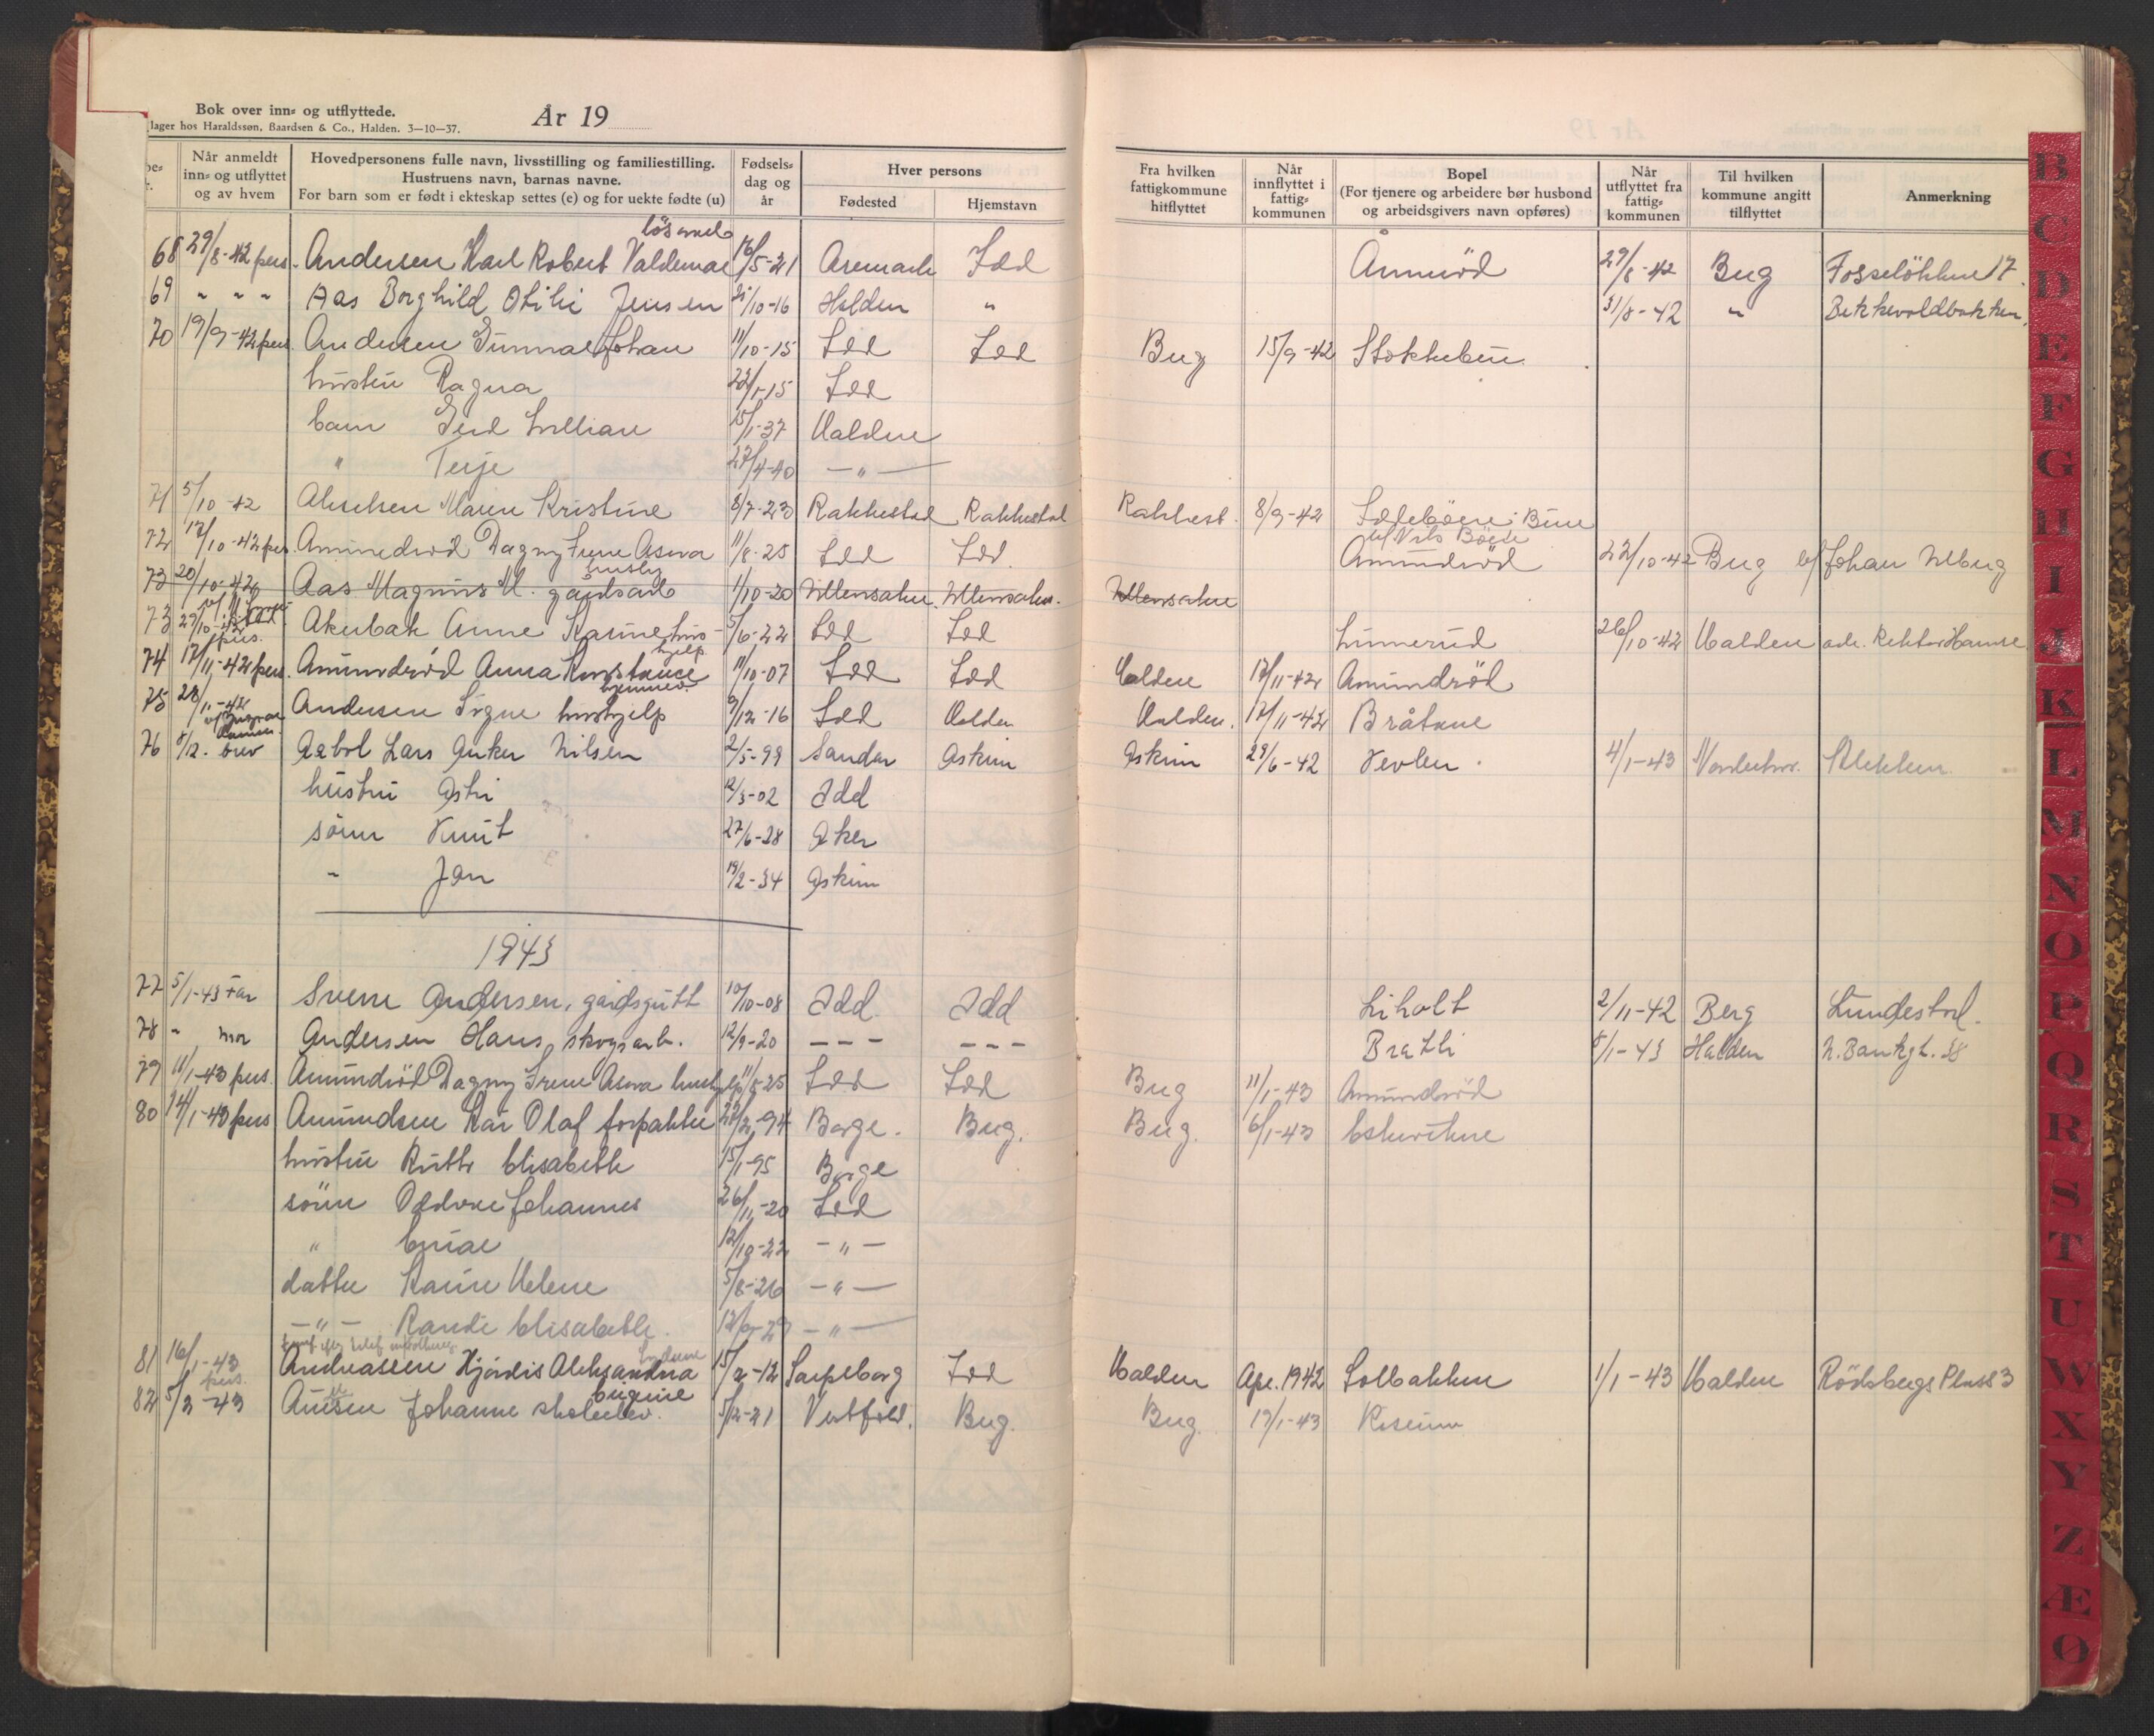 Bok over inn- og utflyttede.
lager hos Haraldssøn, Baardsen & Co., Halden. 3—10—37.
År 19
Når anmeldt inn- og utflyttet og av hvem
Hovedpersonens fulle navn, livsstilling og familiestilling.
Hustruens navn, barnas navne.
For barn som er født i ekteskap settes (e) og for uekte fødte (u)
Fødsels-dag og år
Hver persons
Fødested
Hjemstavn
Fra hvilken fattigkommune hitflyttet
Når innflyttet i fattig-kommunen
Bopel
(For tjenere og arbeidere bør husbond og arbeidsgivers navn opføres)
Når utflyttet fra fattig-kommunen
Til hvilken kommune angitt tilflyttet
Anmerkning
68 29/8-42 pers. Andersen Karl Robert Valdemar 16/5-21 Aremark Idd 29/8-42 Berg Fosseløkken 17.
69 " " " Aas Borghild Otilie Jensen /10-16 Halden " 31/8-42 " Bekkevoldbakken.
70 19/9-42 pers. Andersen Gunnar Johan 11/10-15 Idd Idd Berg 15/9-42
hustru Ragna 22/1-15 Idd
barn Gerd Lillian 15/1-37 Halden
" Terje 27/4-40 — " —
71 5/10-42 Maren Kristine 8/7-23 Rakkestad Rakkestad Rakkest. 8/9-42
72 17/10-42 pers. Amundrød Dagny Irene Asora 11/8-25 Idd Idd. Amundrød 22/10-42 Berg
73 20/10-42 Aas Magnus M. gårdsarb 1/10-20
73 Akerbak Anne Karine 5/6-22 Idd Idd Linnerud 26/10-42 Halden
74 17/11-42 pers. Amundrød Anna Konstance 11/10-07 Idd Idd Halden 17/11-42 Amundrød
75 28/11-42 Andersen Signe hushjelp 9/12-16 Idd Halden Halden. 17/11-42 Bråtane
76 8/12. brev Lars Anker Nilsen 2/5-99 Sandar Askim Askim 29/6-42 Vevlen 4/1-43
hustru Astri 12/3-02 Idd
sønn Knut 27/6-28 Aker
" Jan 19/2-34 Askim
1943
77 5/1-43 Far Sverre Andersen, gårdsgutt 10/10-08 Idd Idd Liholt 2/11-42 Berg Lundestad.
78 " mor Andersen Hans, skogsarb. 12/9-20 — — — — — — Bratli 5/1-43 Halden N. Bankgt. 38
79 11/1-43 pers. Amundrød Dagny Irene Asora hushjelp 11/8-25 Idd Idd Berg 11/1-43 Amundrød
80 14/1-43 pers Amundsen Kar Olaf forpakter 22/2-94 Borge. Berg. Berg. 6/1-43
hustru Ruth Elisabeth 15/1-95 Borge
sønn Oddvar Johannes 26/11-20 Idd
" Einar 12/10-22 — " —
datter Karin Helene 5/8-26 — " —
— " — Randi Elisabeth. 12/6-29 — " —
81 16/1-43 pers. Andreassen Hjørdis Aleksandra 15/2-12 Sarpsborg Idd Halden Apr. 1942 Solbakken 1/1-43 Halden Rødsbergs Plass 3
82 5/2-43 Johanne Eugenie skoleelev. 5/2-21 Vestfold. Berg. Berg. 17/1-43
B
C
D
E
F
G
H
I
J
K
L
M
N
O
P
Q
R
S
T
U
W
X
Y
Z
Æ
Ø